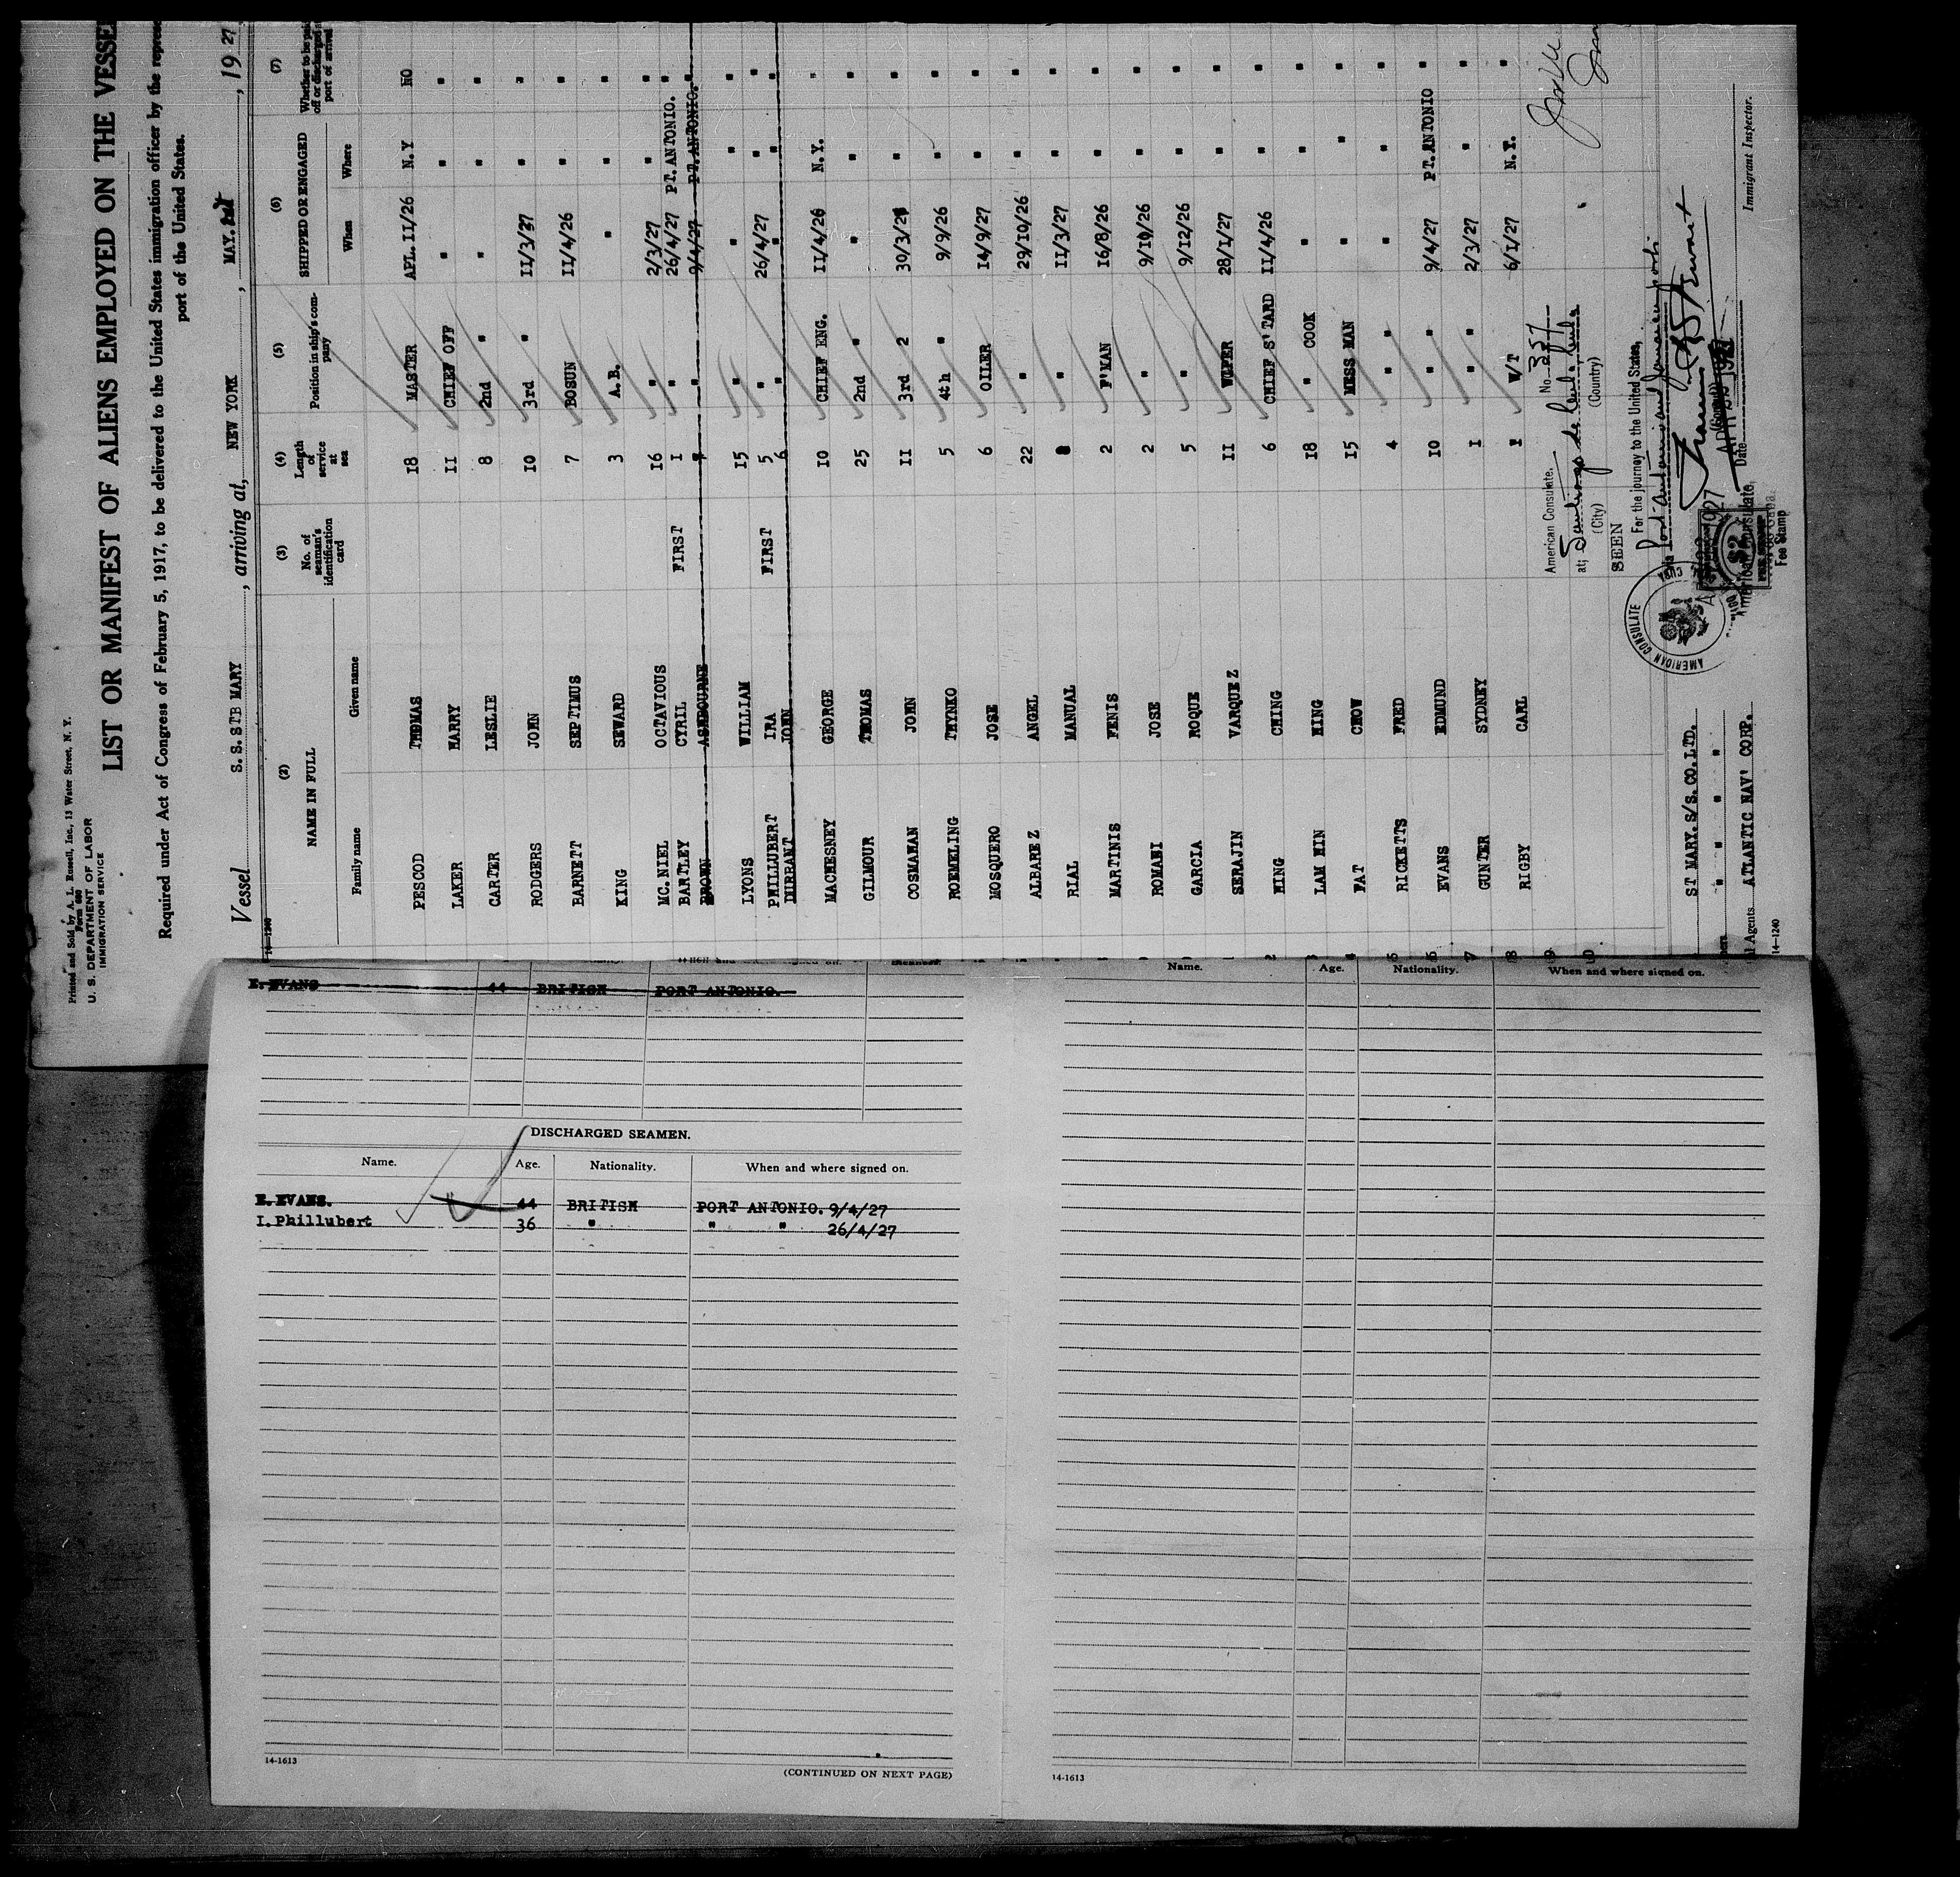 Printed and Sold by A. L. Russell, Inc., 13 Water Street, N. Y.
Form 680
U. S. DEPARTMENT OF LABOR
IMMIGRATION SERVICE
LIST OR MANIFEST OF ALIENS EMPLOYED ON THE VESSE
Required under Act of Congress of February 5, 1917, to be delivered to the United States immigration officer by the repres
port of the United States.
Vessel S. S. STB MARY, arriving at, NEW YORK, MAY. , 19 27
14-1240
(2) (3) (4) (5) (6) (7)
NAME IN FULL No. of seaman's identification card Length of service at sea Position in ship's company SHIPPED OR ENGAGED Whether to be paid off or discharged port of arrival
Family name Given name When Where
PESCOD THOMAS 18 MASTER APL. 11/26 N.Y NO
LAKER HARRY 11 CHIEF OFF " " "
CARTER LESLIE 8 2nd " " " "
RODGERS JOHN 10 3rd " 11/3/27 " "
BARNETT SEPTIMUS 7 BOSUN 11/4/26 " "
KING SEWARD 3 A.B. " " "
MC.NIEL OCTAVIOUS 16 " 2/3/27 " "
BARTLEY CYRIL FIRST 1 " 26/4/27 PT.ANTONIO. "
BROWN ASHBOURNE " 9/4/27 PT.ANTONIO. "
LYONS WILLIAM 15 " " " "
PHILLUBERT IRA FIRST 5 " 26/4/27 " "
DURRANT JOHN 6 " " " "
MACHESNEY GEORGE 10 CHIEF ENG. 11/4/26 N.Y. "
GILMOUR THOMAS 25 2nd " " " "
COSMAHAN JOHN 11 3rd 2 30/3/21 " "
ROEMELING THYNKO 5 4th " 9/9/26 " "
MOSQUERO JOSE 6 OILER 14/9/27 " "
ALBAREZ ANGEL 22 " 29/10/26 " "
RIAL MANUAL 8 " 11/3/27 " "
MARTINIS FENIS 2 F'MAN 16/8/26 " "
ROMANI JOSE 2 " 9/10/26 " "
GARCIA ROQUE 5 " 9/12/26 " "
SERAJIN VARQUEZ 11 WIPER 28/1/27 " "
HING CHING 6 CHIEF S'TARD 11/4/26 " "
LAM HIN HING 18 " COOK " " "
FAT CHOW 15 MESS MAN " " "
RICKETTS FRED 4 " " " " "
EVANS EDMUND 10 " " 9/4/27 PT.ANTONIO "
GUNTER SYDNEY 1 " " 2/3/27 " "
RIGBY CARL W/T 6/1/27 N.Y. "
American Consulate. No. 357
at; Santiago de Cuba Cuba
(City) (Country)
SEEN
For the journey to the United States,
Port Antonio and Jamaican ports
AMERICAN CONSULATE
$2
Fee Stamp
Date
Immigrant Inspector.
ST MARY. S/S. CO. LTD.
" " " "
Agents ATLANTIC NAV' CORP.
14-1240
E. EVANS 44 BRITISH PORT ANTONIO.
DISCHARGED SEAMEN.
Name. Age. Nationality. When and where signed on.
E. EVANS. 44 BRITISH PORT ANTONIO. 9/4/27
I. Phillubert 36 " " " 26/4/27
14-1613
(CONTINUED ON NEXT PAGE)
Name. Age. Nationality. When and where signed on.
14-1613